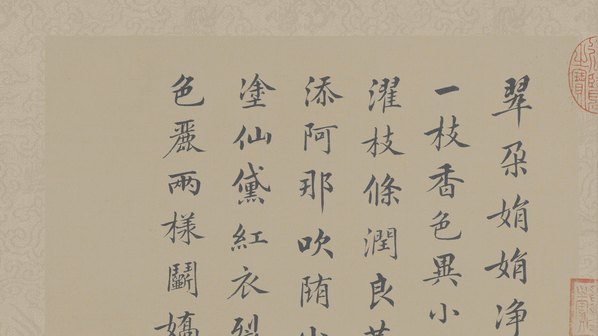 翠朶娟娟净
一枝香色異小
濯枝條潤良
添阿那吹随
塗仙黛紅衣
色麗兩樣鬭嬌